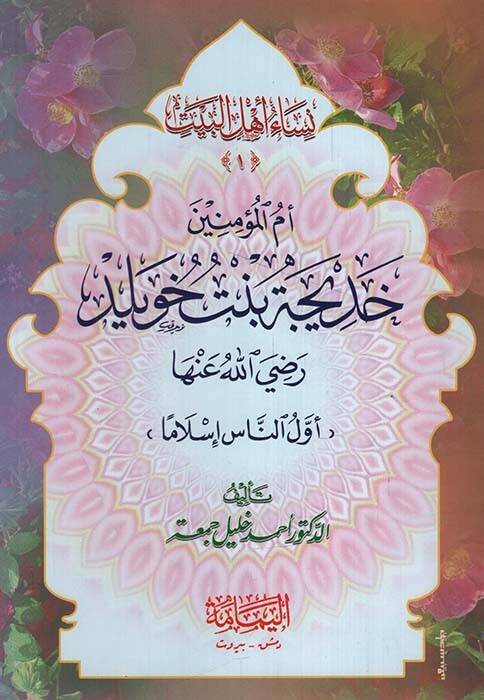 نِسَاءُ أَهْلِ البَيْتِ
﴿ ١ ﴾
أُمُّ الْمُؤْمِنِيْنَ
خَدِيْجَةُ بِنْتُ خُوَيْلِدٍ
رَضِيَ اللهُ عَنْهَا
(أَوَّلُ النَّاسِ إِسْلَامًا)
تأليفُ
الدّكتور أحمد خليل جمعة
اليمامة
دمشق - بيروت